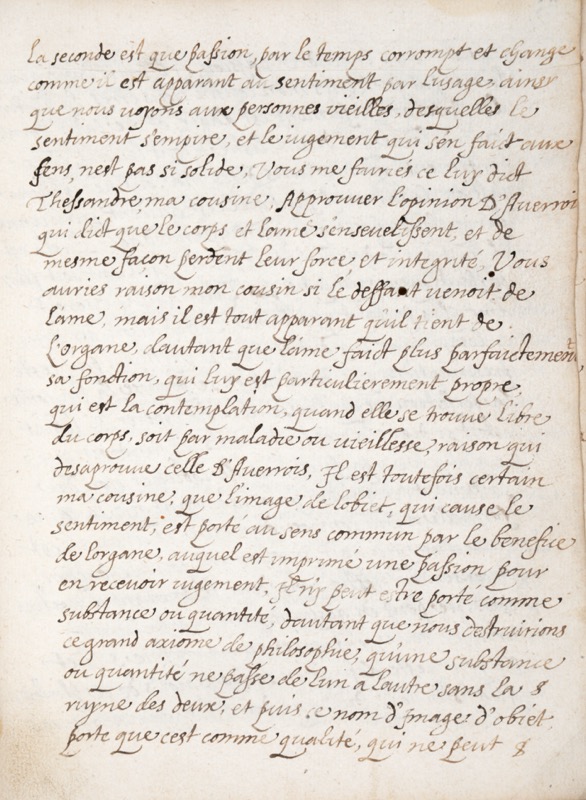 la seconde est que passion, par le temps corrompt et change
comme il est apparant au sentiment par lusage, ainsy
que nous voyons aux personnes vieilles, desquelles le
sentiment s'empire, et le iugement qui s'en faict aux
sens, nest pas si solide, Vous me fairiés ce luy dict
Thessandre ma cousine, Approuver l'opinion D'Averrois
qui dict que le corps et lame s'ensevelissent, et de
mesme façon perdent leur force et integrité, Vous
auries raison mon cousin si le deffaut venoit de
lame, mais il est tout apparant quil tient de
L'organe, dautant que lame faict plus parfaictement
sa fonction, qui luy est particulierement propre
qui est la contemplation, quand elle se trouve libre
du corps, soit par maladie ou vieillesse, raison qui
desaprouve celle D'Averrois, Il est toutefois certain
ma cousine, que l'image de lobiet, qui cause le
sentiment, est porté au sens commun par le benefice
de lorgane, auquel est imprimé une passion pour
en recevoir iugement, Il n'y peut estre porté comme
substance ou quantité, dautant que nous destruirions
ce grand axiome de philosophie, qu'une substance
ou quantité ne passe de l'un a lautre sans la
ruyne des deux, et puis ce nom d'Image d'obiet,
porte que cest comme qualité, qui ne peut